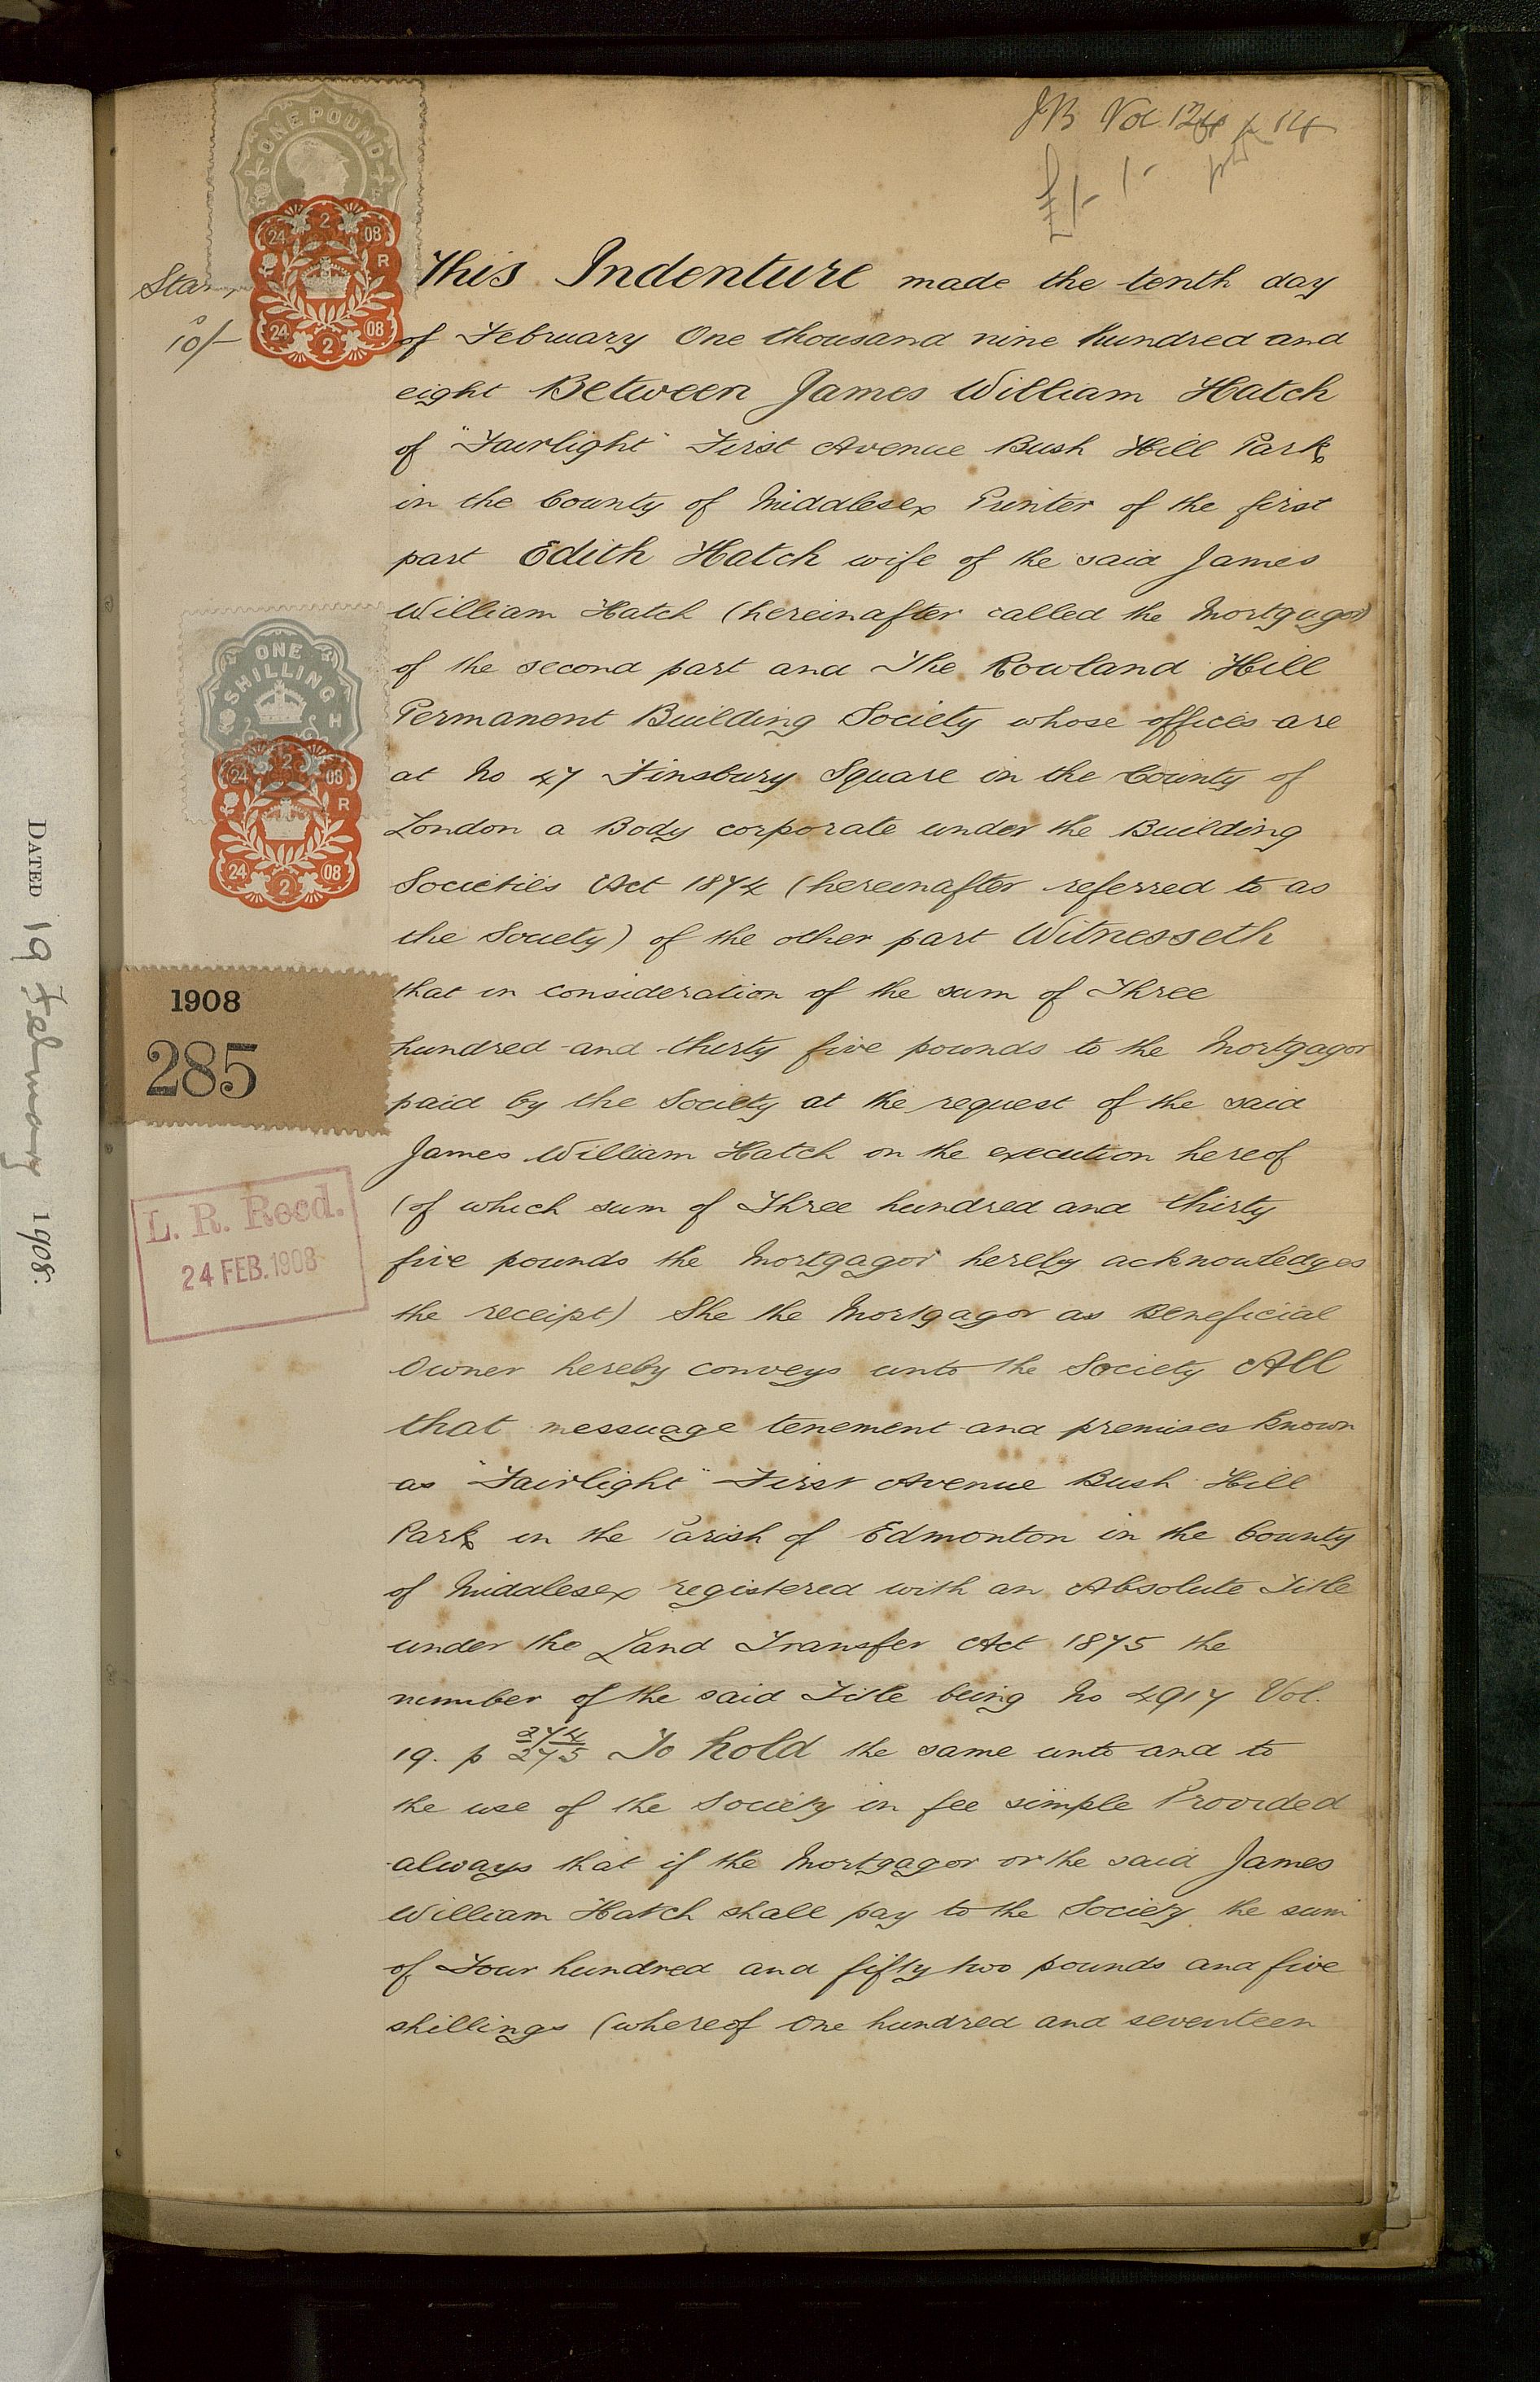 JB Vol 124 p 14
£1- 1-
ONE POUND
24 2 08
R
24 2 08
Stamp
10/-
This Indenture made the tenth day
of February One thousand nine hundred and
eight Between James William Hatch
of "Fairlight" First Avenue Bush Hill Park
in the County of Middlesex Printer of the first
part Edith Hatch wife of the said James
William Hatch (hereinafter called the Mortgagor)
of the second part and The Rowland Hill
Permanent Building Society whose offices are
at No 47 Finsbury Square in the County of
London a Body corporate under the Building
Societies Act 1874 (hereinafter referred to as
the Society) of the other part Witnesseth
that in consideration of the sum of Three
hundred and thirty five pounds to the Mortgagor
paid by the Society at the request of the said
James William Hatch on the execution hereof
(of which sum of Three hundred and thirty
five pounds the Mortgagor hereby acknowledges
the receipt) She the Mortgagor as Beneficial
Owner hereby conveys unto the Society All
that messuage tenement and premises known
as "Fairlight" First Avenue Bush Hill
Park in the Parish of Edmonton in the County
of Middlesex registered with an Absolute Title
under the Land Transfer Act 1875 the
number of the said Title being No 4917 Vol.
19. p 274/275 To hold the same unto and to
the use of the Society in fee simple Provided
always that if the Mortgagor or the said James
William Hatch shall pay to the Society the sum
of Four hundred and fifty two pounds and five
shillings (whereof One hundred and seventeen
ONE
SHILLING
H
24 2 08
R
24 2 08
1908
285
L. R. Recd.
24 FEB. 1908
DATED 19 February 1908.